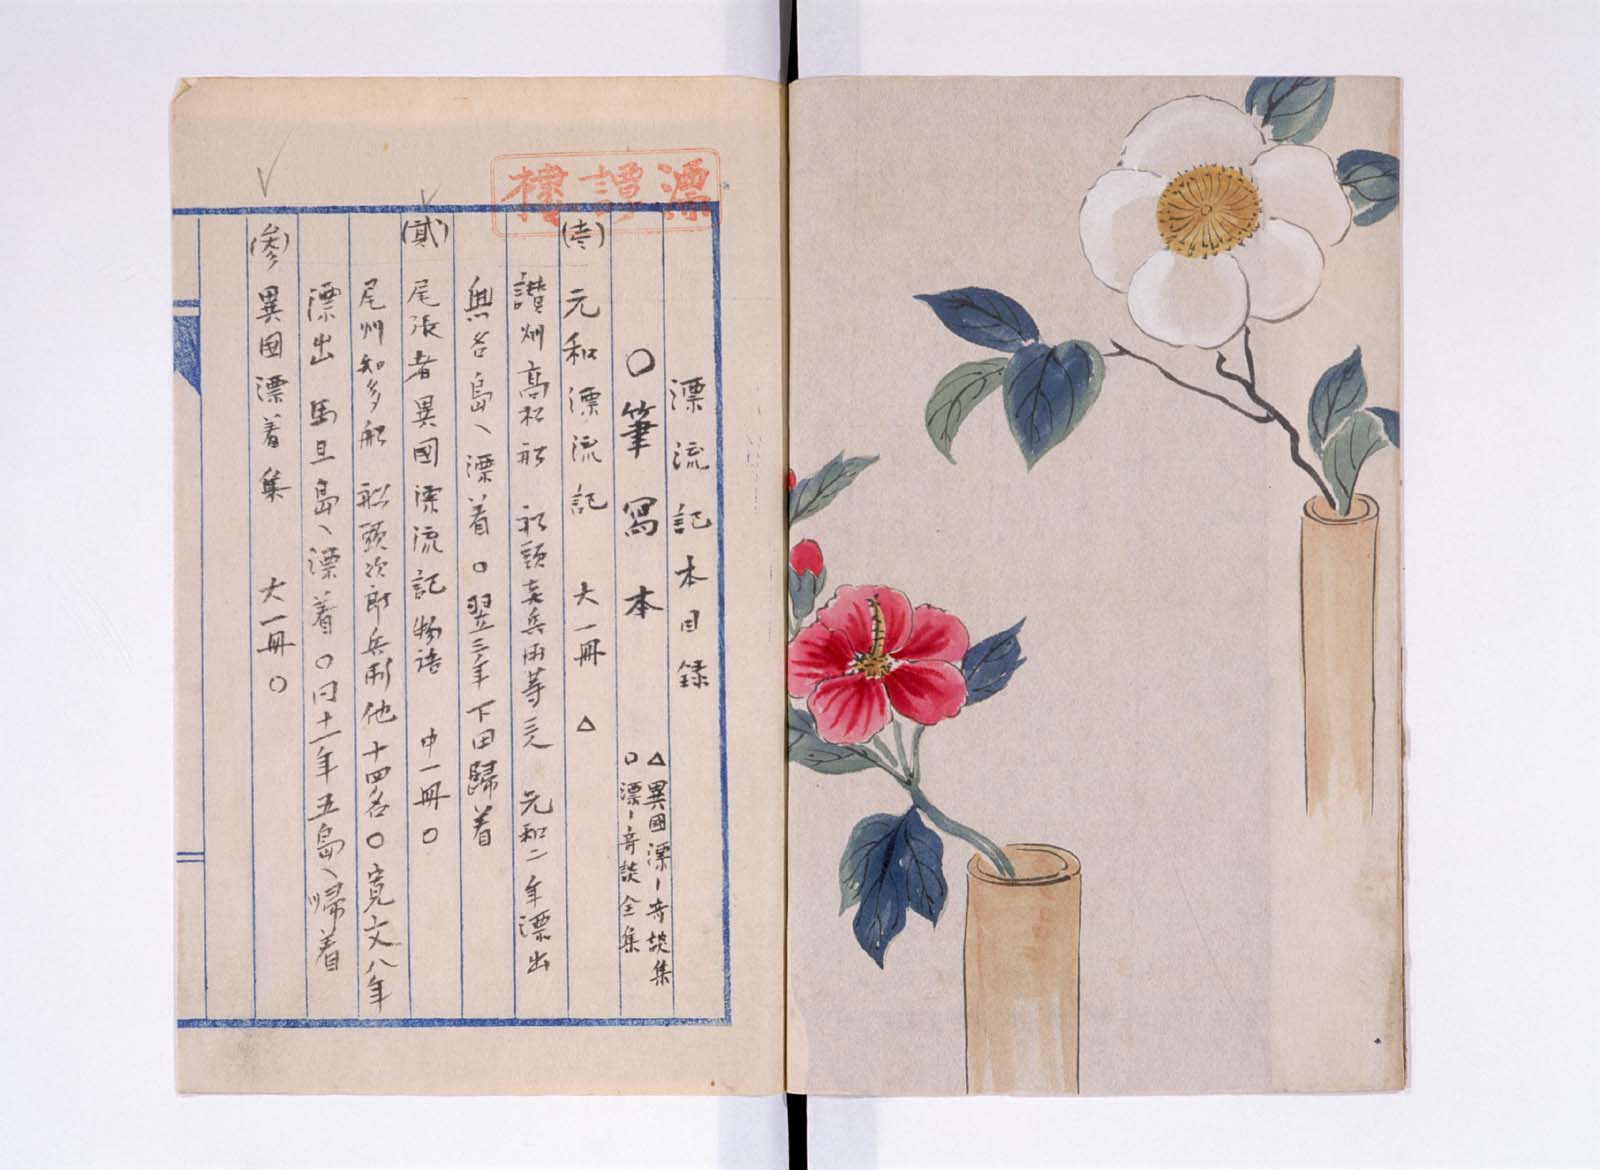 漂譚樓
漂流記本目録
○筆寫本
△異國漂ー奇談集
○漂ー奇談全集
(壱)元和漂流記 大一冊 △
讃州高松船 船頭 兵衛等三人 元和二年漂出
無名島ヘ漂着○翌三年下田歸着
(貳)尾張者異國漂流記物語 中一冊○
尾州知多船 船頭次郎兵衛他十四名○寛文八年
漂出 馬旦島ヘ漂着○同十一年五島ヘ帰着
(参)異國漂着集 大一冊○